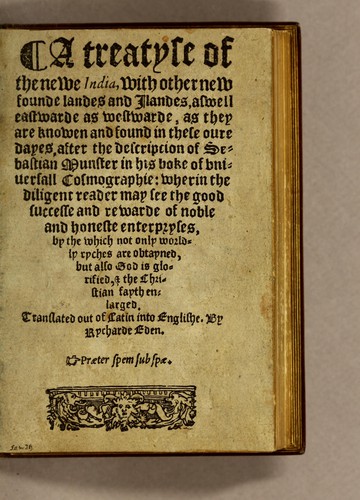 ¶A treatyse of
the newe India, with other new
founde landes and Ilandes, aswell
eastwarde as westwarde, as they
are knowen and found in these oure
dayes, after the description of Se-
bastian Munster in his boke of vni-
uersall Cosmographie: wherin the
diligent reader may see the good
successe and rewarde of noble
and honeste enterpryses,
by the which not only world-
ly ryches are obtayned,
but also God is glo-
rified, & the Chri-
stian fayth en-
larged.
Translated out of Latin into Englishe. By
Rycharde Eden.
☞Præter spem sub spæ.